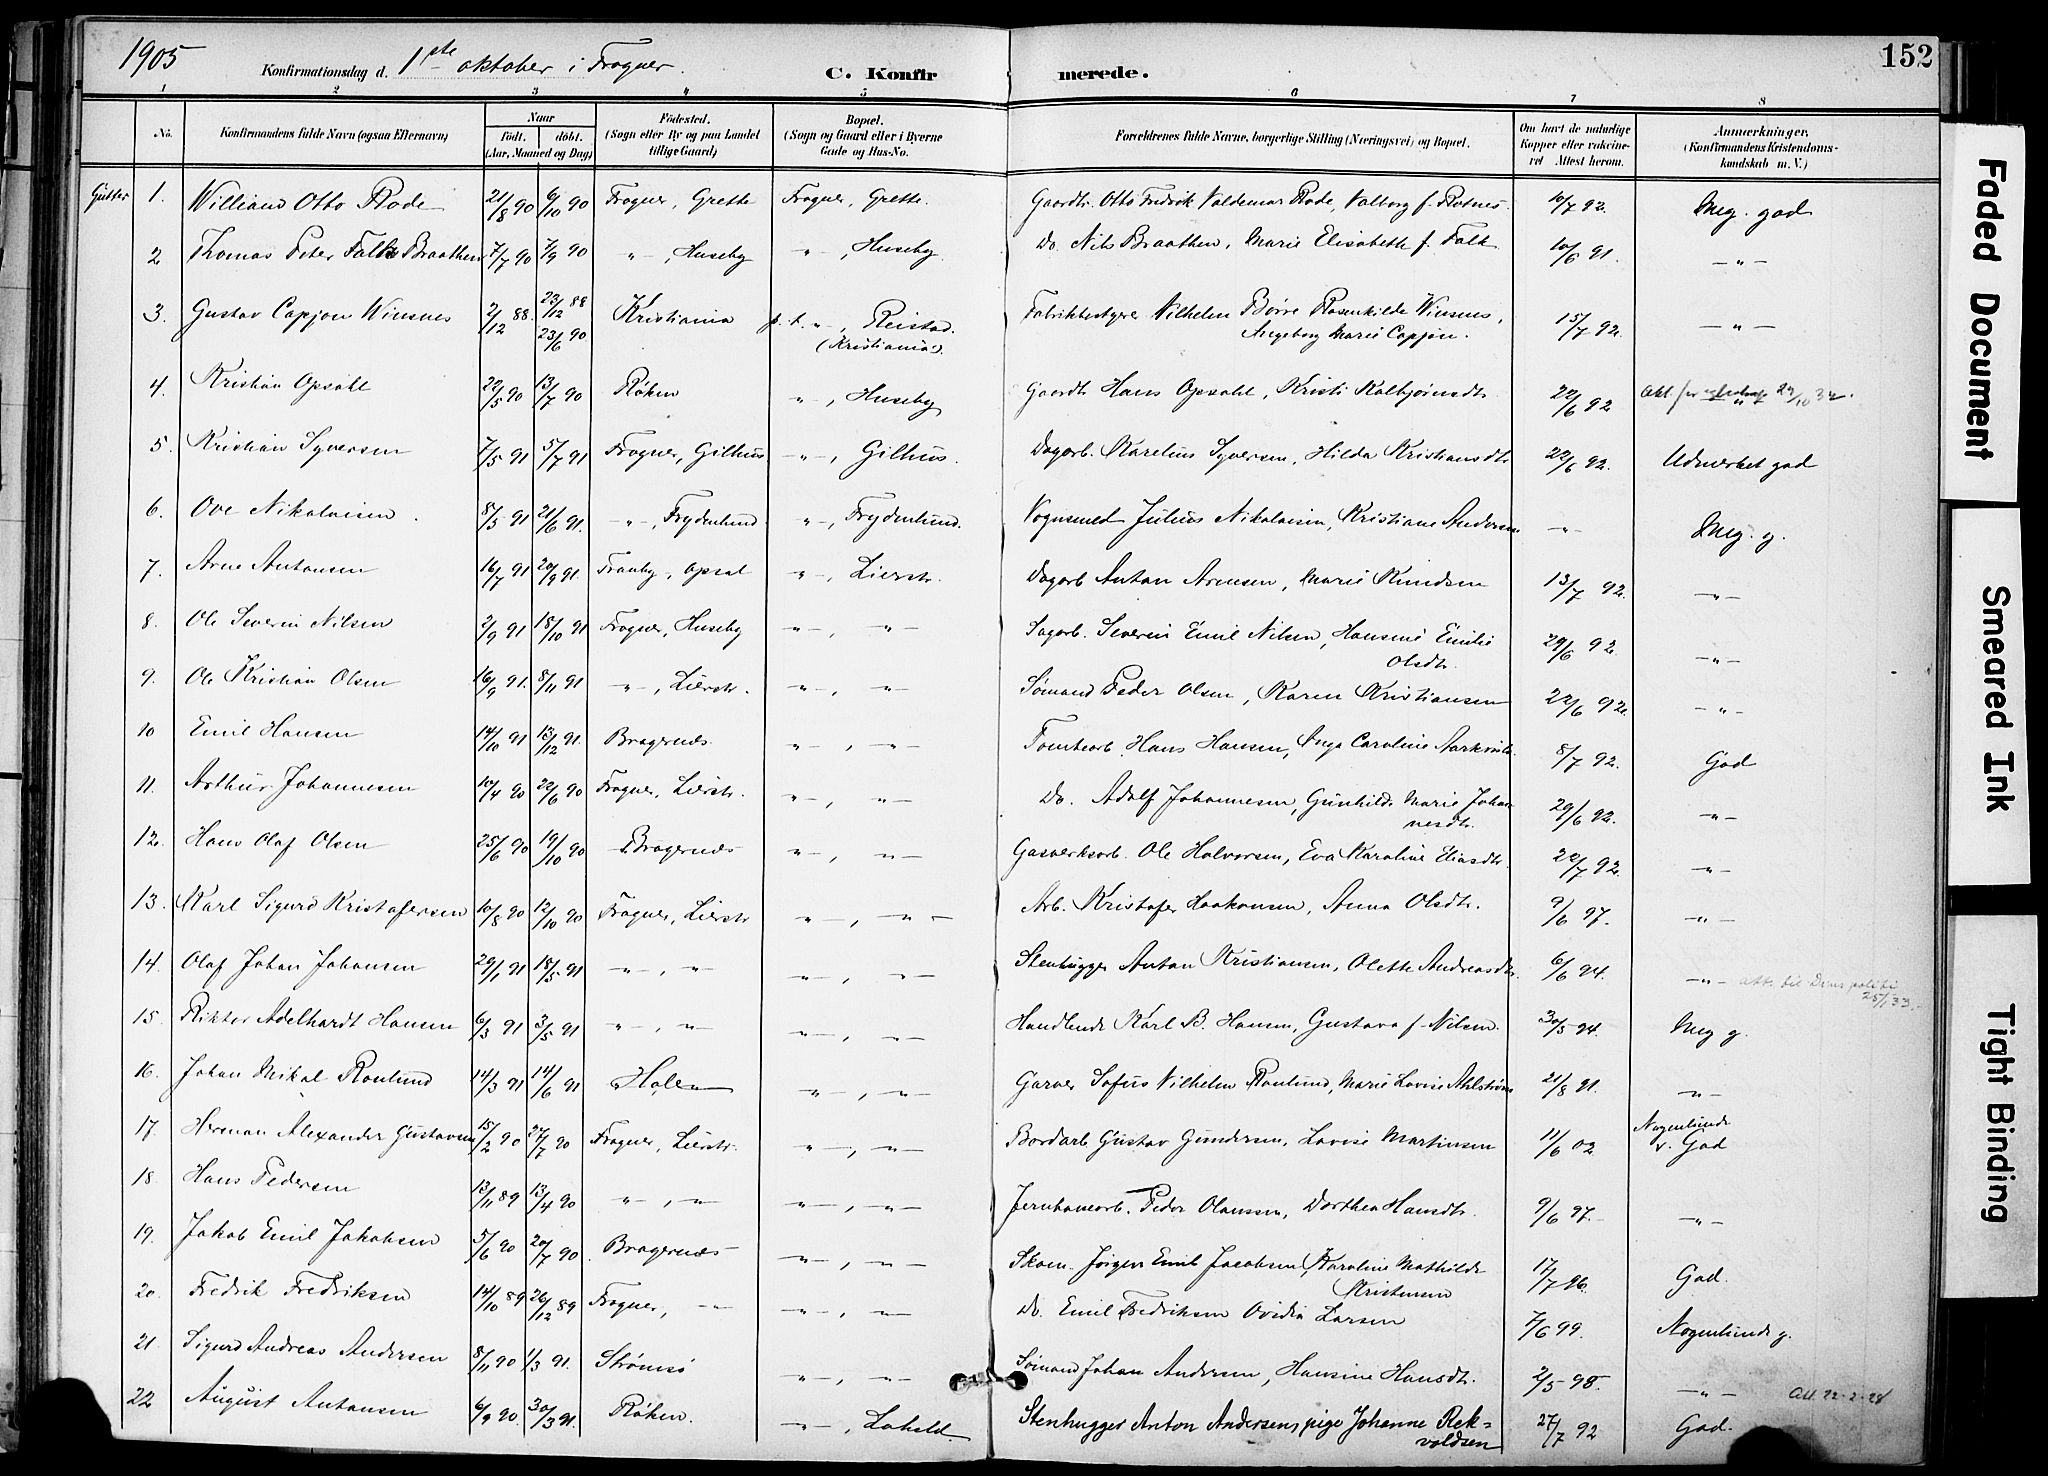 1905 Konfirmationsdag d. 1ste oktober i Frogner. C. Konfirmerede. 152
1 2 3 4 5 6 7 8
No. Konfirmandens fulde Navn (ogsaa Efternavn) Naar født. døbt. (Aar, Maaned og Dag) Fødested. (Sogn eller By og paa Landet tillige Gaard) Bopæl. (Sogn og Gaard eller i Byerne Gade og Hus-No. Forældrenes fulde Navne, borgerlige Stilling (Næringsvei) og Bopæl. Om havt de naturlige Kopper eller vakcineret Attest herom. Anmærkninger. (Konfirmandens Kristendomskundskab m. V.)
Gutter 1. William Otto Rode 21/8 90 6/10 90 Frogner, Grette Frogner, Grette. Gaardbr. Otto Fredrik Valdemar Rode, Valborg f. Rotnes. 10/7 92. Meg. god
2 Thomas Peter Falk Braathen 7/7 90 7/9 90 -"-, Huseby -"-, Huseby. Do. Nils Braathen, Marie Elisabeth f. Falk 10/6 91. -"-
3. Gustav Capjon Winsnes 2/12 88. 23/12 88 23/6 90 Kristiania p.t. -"-, Reistad. (Kristiania). Fabrikbestyrer Vilhelm Børre Rosenkilde Winsnes, Ingeborg Marie Capjon. 15/7 92. -"-
4. Kristian Opsahl 22/5 90 13/7 90 Røken -"-, Huseby Gaardbr Hans Opsahl, Kristi Kolbjørnsdtr 22/6 92 -"- 29/10 32.
5. Kristian Syversen 7/5 91 5/7 91 Frogner, Gilhus -"-, Gilhus. Dagarb. Karelius Syversen, Hilda Kristiansdtr 22/6 92. Udmerket god
6. Ove Nikolaisen. 8/5 91 21/6 91. -"-, Frydenlund -"-, Frydenlund. Vognsmed Julius Nikolaisen, Kristiane Andersen -"- Meg. g.
7. Arne Antonsen 16/7 91 20/9 91. Tranby, Opsal -"-, Lierstr. Dagarb Anton Arnesen, Marie Knudsen 13/7 92. -"-
8. Ole Severin Nilsen 2/9 91 18/10 91 Frogner, Huseby -"-, -"- Sagarb. Severin Emil Nilsen, Hansine Emilie Olsdtr. 29/6 92. -"-
9. Ole Kristian Olsen 16/9 91. 8/11 91 -"-, Lierstr. -"-, -"- Sømand Peder Olsen, Karen Kristiansen 22/6 92. -"-
10 Emil Hansen 14/10 91 13/12 91. Bragernes. -"-, -"- Tomtearb. Hans Hansen, Inga Caroline 8/7 92. God
11. Arthur Johannesen 10/4 90 22/6 90 Frogner, Lierstr. -"-, -"- Do. Adolf Johannesen, Gunhilde Marie Johannesdtr. 29/6 92. -"-
12. Hans Olaf Olsen 25/6 90 19/10 90 Bragernes -"-, -"- Gasverksarb. Ole Halvorsen, Eva Karoline Eliasdtr 22/7 92. -"-
13. Karl Sigurd Kristofersen 10/8 90 12/10 90 Frogner, Lierstr -"-, -"- Arb. Kristofer Haakonsen, Anna Olsdtr. 9/6 97. -"-
14. Olaf Johan Johansen 29/1 91 18/5 91 -"-, -"- -"-, -"- Stenhugger Anton Kristiansen, Olette Andreasdtr. 6/6 94. -"- att. til Drms politi 25/1 33.
15. Viktor Adelhardt Hansen 6/3 91 3/5 91 -"-, -"- -"-, -"- Handlende Karl B. Hansen, Gustava f. Nilsen. 30/5 94. Meg g.
16. Johan Mikal Ronlund 14/3 91 14/6 91 Hole -"-, -"- Garver Sofus Vilhelm Ronlund, Marie Lovise Ahlstrøm 21/8 91. -"-
17. Herman Alexander Gustavsen 15/2 90 27/7 90 Frogner, Lierstr. -"-, -"- Bordarb Gustav Gundersen, Lovise Martinsen 11/6 02 Nogenlunde v. God
18. Hans Pedersen 13/11 89 13/4 90 -"-, -"- -"-, -"- Jernbanearb. Peder Olaussen, Dorthea Hansdtr. 9/6 97. -"-
19. Jakob Emil Jakobsen 5/6 90 20/7 90 Bragernes -"-, -"- Skom. Jørgen Emil Jacobsen, Karoline Mathilde Kristensen 17/7 96. God.
20. Fredrik Fredriksen 14/10 89 26/12 89 Frogner, -"- -"-, -"- Do. Emil Fredriksen Ovidia Larsen 7/6 99. Nogenlunde g.
21. Sigurd Andreas Andersen 8/11 90 1/3 91. Strømsø -"-, -"- Sømand Johan Andersen, Hansine Hansdtr. 2/5 98. -"-
22 August Antonsen 6/9 90. 30/3 91. Røken. -"-, Lahell. Stenhugger Anton Andersen, pige Johanne Rekvoldsen 27/7 92 God. Att 22-2-28
Faded Document
Smeared Ink
Tight Binding